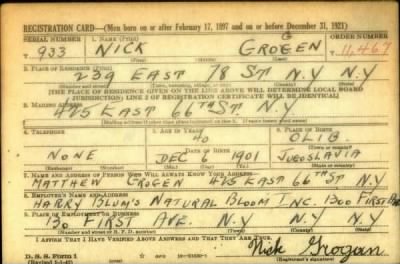 REGISTRATION CARD—(Men born on or after February 17, 1897 and on or before December 31, 1921)
SERIAL NUMBER 1. NAME (Print) ORDER NUMBER
T 933 NICK G GROGEN T 11,467
(First) (Middle) (Last)
2. PLACE OF RESIDENCE (Print)
239 EAST 78 ST N.Y N.Y
(Number and street) (Town, township, village, or city) (County) (State)
[THE PLACE OF RESIDENCE GIVEN ON THE LINE ABOVE WILL DETERMINE LOCAL BOARD
JURISDICTION; LINE 2 OF REGISTRATION CERTIFICATE WILL BE IDENTICAL]
3. MAILING ADDRESS
425 EAST 66TH ST N.Y.
[Mailing address if other than place indicated on line 2. If same insert word same]
4. TELEPHONE 5. AGE IN YEARS 6. PLACE OF BIRTH
40 OLIB
NONE DATE OF BIRTH DEC 6 1901 JUGOSLAVIA
(Exchange) (Number) (Mo.) (Day) (Yr.) (State or country)
7. NAME AND ADDRESS OF PERSON WHO WILL ALWAYS KNOW YOUR ADDRESS
MATTHEW GROGEN 425 EAST 66TH ST N.Y
8. EMPLOYER'S NAME AND ADDRESS
HARRY BLUM'S NATURAL BLOOM INC. 1300 FIRST AVE
9. PLACE OF EMPLOYMENT OR BUSINESS
130 FIRST AVE. N.Y N.Y
(Number and street or R. F. D. number) (Town) (County) (State)
I AFFIRM THAT I HAVE VERIFIED ABOVE ANSWERS AND THAT THEY ARE TRUE.
D. S. S. Form 1 Nick Grogan
(Revised 1-1-42) (over) (Registrant's signature)